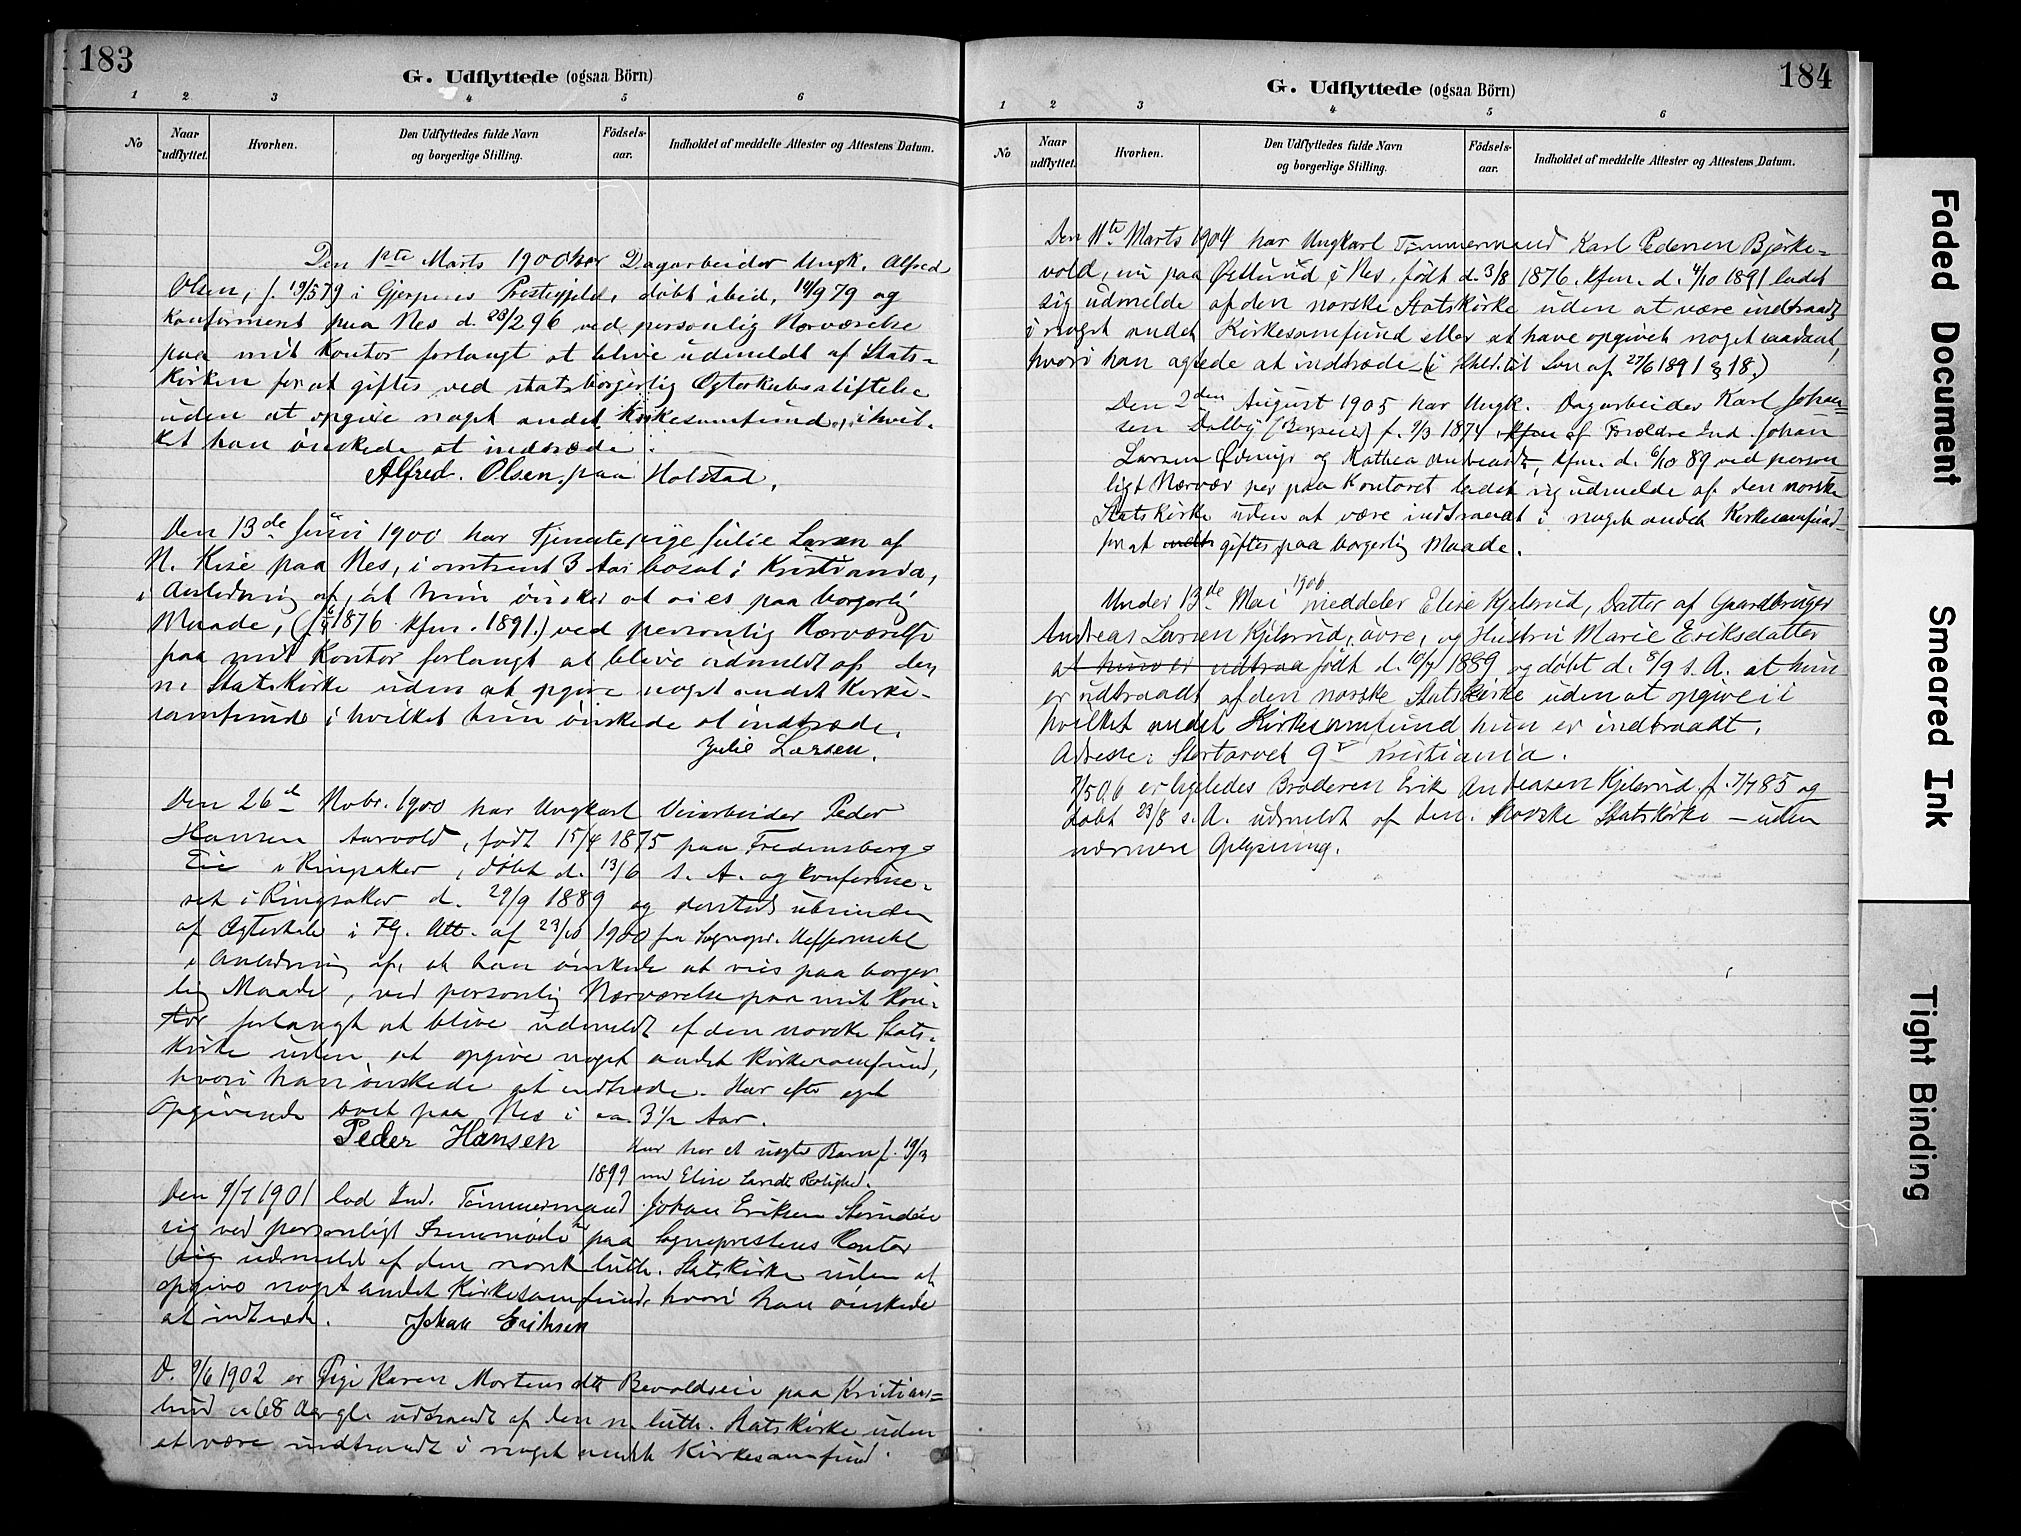 183
G. Udflyttede (ogsaa Börn)
1 2 3 4 5 6
No
Naar udflyttet.
Hvorhen.
Den Udflyttedes fulde Navn og borgerlige Stilling.
Födsels-aar.
Indholdet af meddelte Attester og Attestens Datum.
Den 1ste Marts 1900 har Dagarbeider Ungk. Alfred
Olsen, f. 19/5 79 i Gjerpens Prestegjeld, döbt ibid, 14/9 79 og
Konfirmert paa Nes d. 23/2 96 ved personlig Nærværelse
paa mit Kontor forlangt at blive udmeldt af Stats-
kirken for at giftes ved statsborgerlig Ægteskabsstiftelse
uden at opgive noget andet Kirkesamfund, i hvil-
ket han önskede at indtræde.
Alfred. Olsen, paa Holstad.
Den 13de Juni 1900 har Tjenestepige Julie Larsen af
N. Kise paa Nes, i omtrent 3 Aar bosat i Kristiania,
i Anledning af, at hun önsker at vies paa borgerlig
Maade, (f. 1876 kfm. 1891.) ved personlig Nærværelse
paa mit Kontor forlangt at blive udmeldt af den
n. Statskirke uden at opgive noget andet Kirke-
samfund i hvilket hun önskede at indtræde.
Julie Larsen.
Den 26de Nobr. 1900 har Ungkarl Veiarbeider Peder
Hansen Aarvold, födt 15/4 1875 paa Fredensberg
Eie i Ringsaker, döbt d. 13/6 s. A. og konfirme-
ret i Ringsaker d. 29/9 1889 og
af Ægteskab i Flg. Att. af 23/10 1900 fra Sognepr.
i Anledning af, at han önskede at vies paa borger
lig Maade, ved personlig Nærværelse paa mit Kon-
tor forlangt at blive udmeldt af den norske Stats-
kirke uden at opgive noget andet Kirkesamfund,
hvori han önskede at indtræde. Har efter eget
Opgivende boet paa Nes i ca. 3 1/2 Aar.
Peder Hansen
Har har et uægte Barn f. 19/3
1899 med Elise
Den 9/7 1901 lod Ind. Tömmermand Johan Eriksen
sig ved personligt Fremmöde paa Sogneprestens Kontor
sig udmelde af den norsk luth. Statskirke uden at
opgive noget andet Kirkesamfund, hvori han önskede
at indtræde. Johan Eriksen
D. 9/6 1902 er Pige Karen Mortensdtr Bevoldseie paa Kristians-
lund ca 68 Aar gl. udtraadt af den n. luth. Statskirke uden
at være indtraadt i noget andet Kirkesamfund.
184
G. Udflyttede (ogsaa Börn)
1 2 3 4 5 6
No
Naar udflyttet.
Hvorhen.
Den Udflyttedes fulde Navn og borgerlige Stilling.
Födsels-aar.
Indholdet af meddelte Attester og Attestens Datum.
Den 11te Marts 1904 har Ungkarl Tömmermand Karl Pedersen Bjerke-
vold, nu paa Østlund i Nes, födt d. 3/8 1876. kfm. d. 4/10 1891 ladet
sig udmelde af den norske Statskirke uden at være indtraadt
i noget andet Kirkesamfund eller at have opgivet noget saadant,
hvori han agtede at indtræde (i Hhld. til Lov af 27/6 1891 § 18.)
Den 2den August 1905 har Ungk. Dagarbeider Karl Johan-
sen Dalby f. 9/3 1874 kfm af Forældre Ind. Johan
Larsen og Mathea kfm. d. 6/10 89 ved person-
ligt Nærvær per paa Kontoret ladet sig udmelde af den norske
Statskirke uden at være indtraadt i noget andet Kirkesamfund
for at indtr giftes paa borgerlig Maade.
Under 13de Mai 1906 meddeler Elise Kjelsrud, Datter af Gaardbruger
Andreas Larsen Kjelsrud, övre, og Hustru Marie Eriksdatter
at hun er udtraa födt d. 10/7 1889 og döbt d. 8/9 s. A. at hun
er udtraadt af den norske Statskirke uden at opgive i
hvilket andet Kirkesamfund hun er indtraadt.
Adresse: Stortorvet 9 Kristiania.
7/5 06 er ligeledes Broderen Erik Andreasen Kjelsrud f. 7/7 85 og
döbt 23/8 s. A. udmeldt af den Norske Statskirke – uden
nærmere Oplysning.
Faded Document
Smeared Ink
Tight Binding